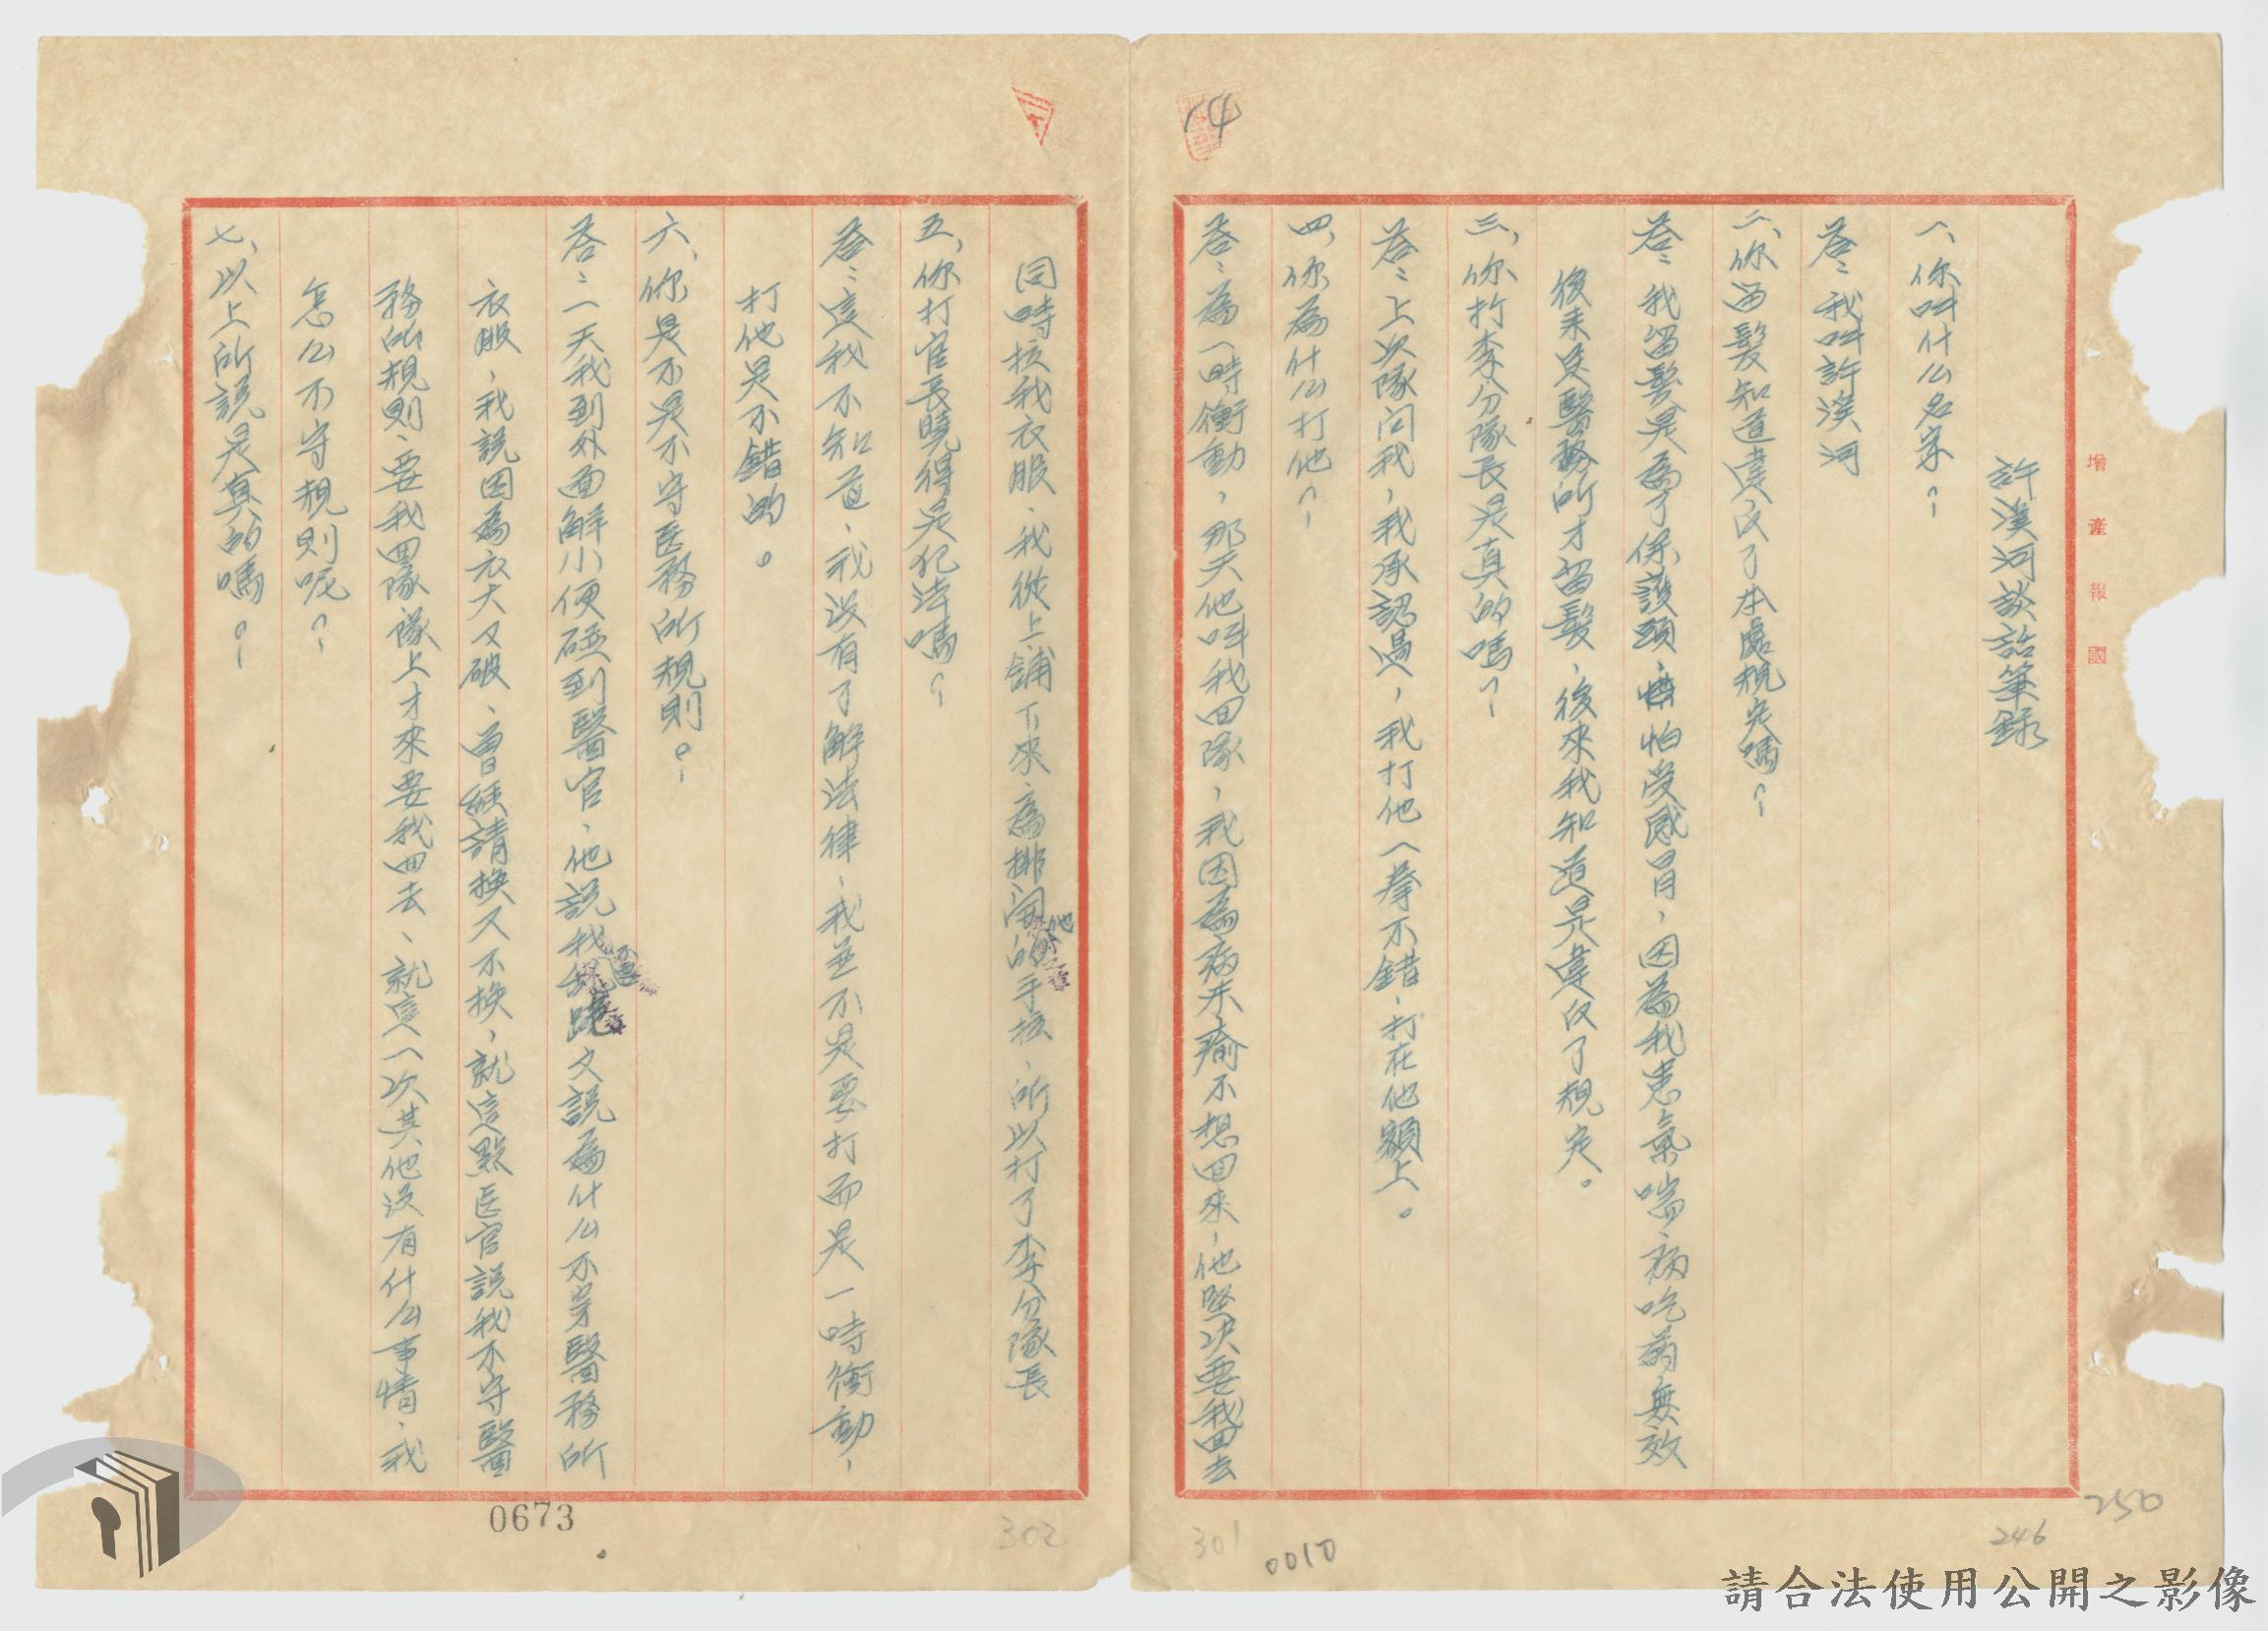 許溪河談話筆錄
一、你叫什么名字？
答：我叫許溪河
二、你留髮知道違反了本處規定嗎？
答：我留髮是為了保護頭，怕受感冒，因為我患氣喘，病吃藥無效
後來是醫務所才留髮，後來我知道是違反了規定。
三、你打李分隊長是真的嗎？
答：上次隊問我，我承認過，我打他一拳不錯，打在他額上。
四、你為什么打他？
答：為一時衝動，那天他叫我回隊，我因為病未癒不想回來，他堅決要我回去
同時拉我衣服、我從上舖下來、為挪開他的手拉、所以打了李分隊長
五、你打官長曉得是犯法嗎？
答：這我不知道、我沒有了解法律、我並不是要打而是一時衝動，
打他是不錯的。
六、你是不是不守医務所規則。？
答：一天我到外面解小便碰到醫官、他說我不應 文說為什么不穿醫務所
衣服，我說因為衣大又破、曾經請換又不換，就這點医官說我不守醫
務所規則、要我回隊 隊上才來要我回去、就這一次其他沒有什么事情、我
怎么不守規則呢？
七、以上所說是真的嗎。？
增產報國
14
0673
302
301
0010
246
250
請合法使用公開之影像